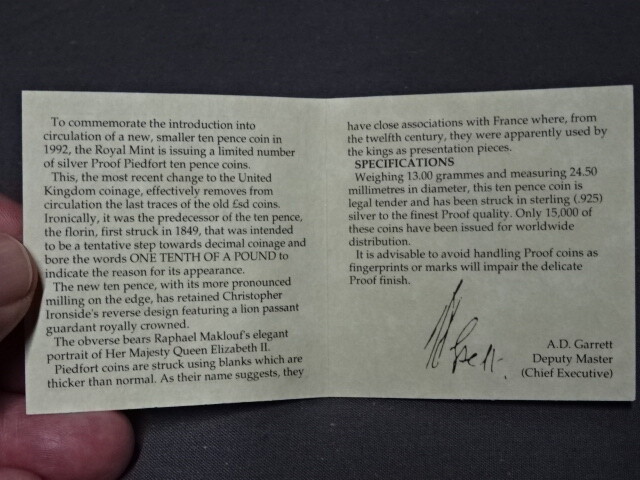 To commemorate the introduction into
circulation of a new, smaller ten pence coin in
1992, the Royal Mint is issuing a limited number
of silver Proof Piedfort ten pence coins.
This, the most recent change to the United
Kingdom coinage, effectively removes from
circulation the last traces of the old £sd coins.
Ironically, it was the predecessor of the ten pence,
the florin, first struck in 1849, that was intended
to be a tentative step towards decimal coinage and
bore the words ONE TENTH OF A POUND to
indicate the reason for its appearance.
The new ten pence, with its more pronounced
milling on the edge, has retained Christopher
Ironside's reverse design featuring a lion passant
guardant royally crowned.
The obverse bears Raphael Maklouf's elegant
portrait of Her Majesty Queen Elizabeth II.
Piedfort coins are struck using blanks which are
thicker than normal. As their name suggests, they
have close associations with France where, from
the twelfth century, they were apparently used by
the kings as presentation pieces.
SPECIFICATIONS
Weighing 13.00 grammes and measuring 24.50
millimetres in diameter, this ten pence coin is
legal tender and has been struck in sterling (.925)
silver to the finest Proof quality. Only 15,000 of
these coins have been issued for worldwide
distribution.
It is advisable to avoid handling Proof coins as
fingerprints or marks will impair the delicate
Proof finish.
A.D. Garrett
Deputy Master
(Chief Executive)